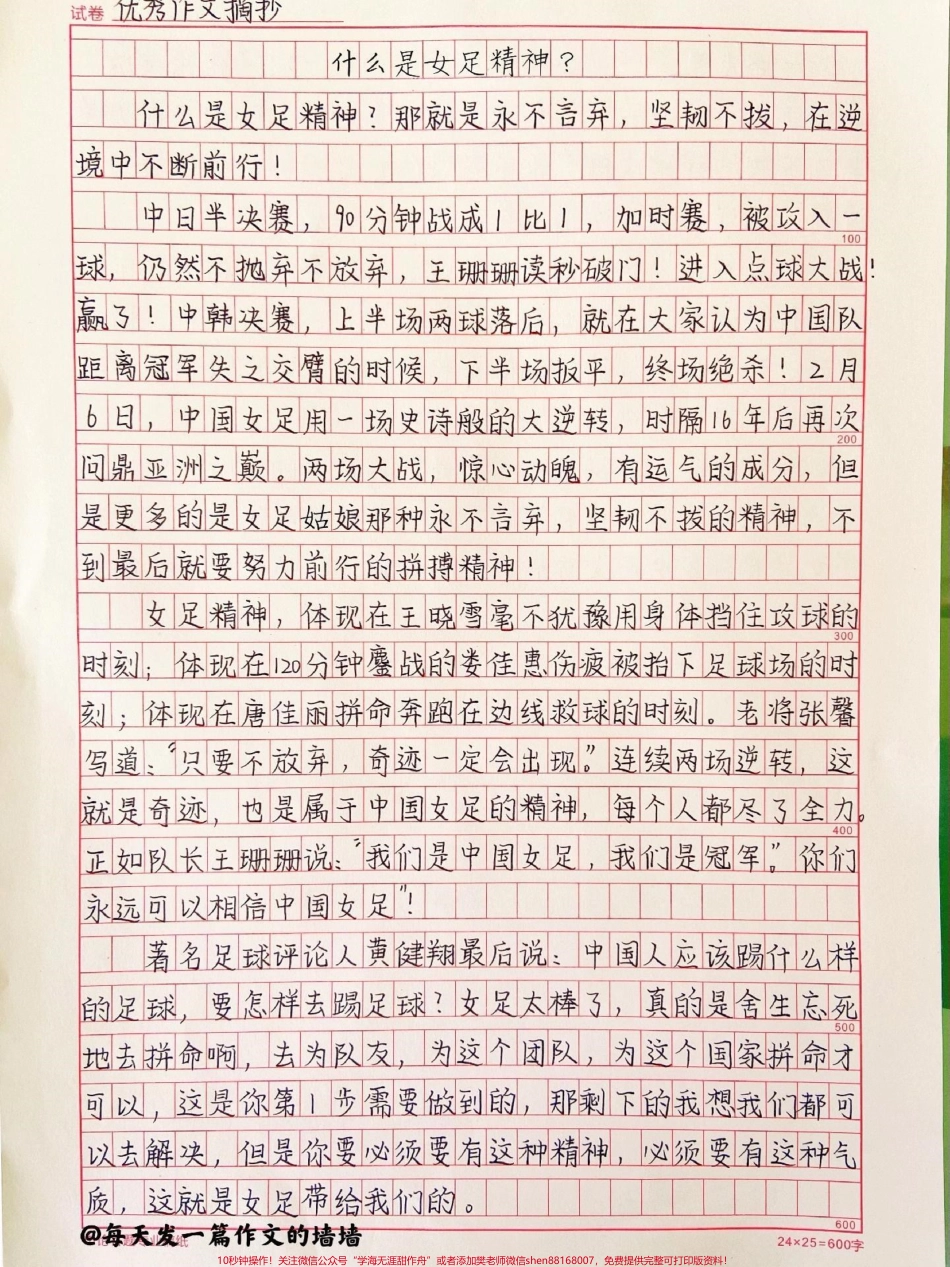 试卷 优秀作文摘抄
什么是女足精神？
什么是女足精神？那就是永不言弃，坚韧不拔，在逆
境中不断前行！
中日半决赛，90分钟战成1比1，加时赛，被攻入一
100
球，仍然不抛弃不放弃，王珊珊读秒破门！进入点球大战！
赢了！中韩决赛，上半场两球落后，就在大家认为中国队
距离冠军失之交臂的时候，下半场扳平，终场绝杀！2月
6日，中国女足用一场史诗般的大逆转，时隔16年后再次
200
问鼎亚洲之巅。两场大战，惊心动魄，有运气的成分，但
是更多的是女足姑娘那种永不言弃，坚韧不拔的精神，不
到最后就要努力前行的拼搏精神！
女足精神，体现在王晓雪毫不犹豫用身体挡住攻球的
300
时刻；体现在120分钟鏖战的娄佳惠伤疲被抬下足球场的时
刻；体现在唐佳丽拼命奔跑在边线救球的时刻。老将张馨
写道：“只要不放弃，奇迹一定会出现。”连续两场逆转，这
就是奇迹，也是属于中国女足的精神，每个人都尽了全力。
400
正如队长王珊珊说：“我们是中国女足，我们是冠军。”你们
永远可以相信中国女足”！
著名足球评论人黄健翔最后说：中国人应该踢什么样
的足球，要怎样去踢足球？女足太棒了，真的是舍生忘死
500
地去拼命啊，去为队友，为这个团队，为这个国家拼命才
可以，这是你第1步需要做到的，那剩下的我想我们都可
以去解决，但是你要必须要有这种精神，必须要有这种气
质，这就是女足带给我们的。
600
@每天发一篇作文的墙墙
24×25=600字
10秒钟操作！关注微信公众号“学海无涯甜作舟”或者添加樊老师微信shen88168007，免费提供完整可打印版资料！